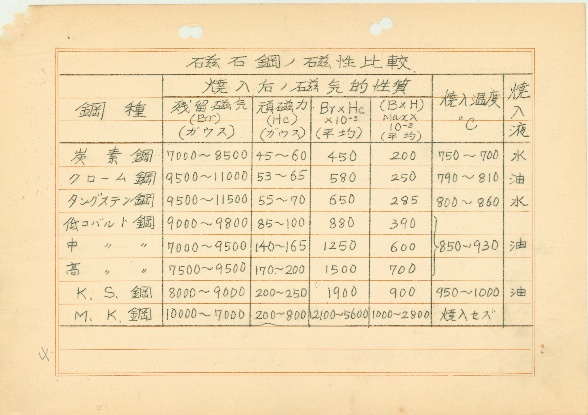 磁石鋼ノ磁性比較
鋼種 焼入右ノ磁気的性質 焼入温度 °C 焼入液
残留磁気 (Br) (ガウス) 頑磁力 (Hc) (ガウス) Br×Hc ×10⁻³ (平均) (B×H) Max× 10⁻³ (平均)
炭素鋼 7000~8500 45~60 450 200 750~700 水
クローム鋼 9500~11000 53~65 580 250 790~810 油
タングステン鋼 9500~11500 55~70 650 285 800~860 水
低コバルト鋼 9000~9800 85~100 880 390
中 〃 〃 7000~9500 140~165 1250 600 850~930 油
高 〃 〃 7500~9500 170~200 1500 700
K.S.鋼 8000~9000 200~250 1900 900 950~1000 油
M.K.鋼 10000~7000 200~800 2100~5600 1000~2800 焼入セズ